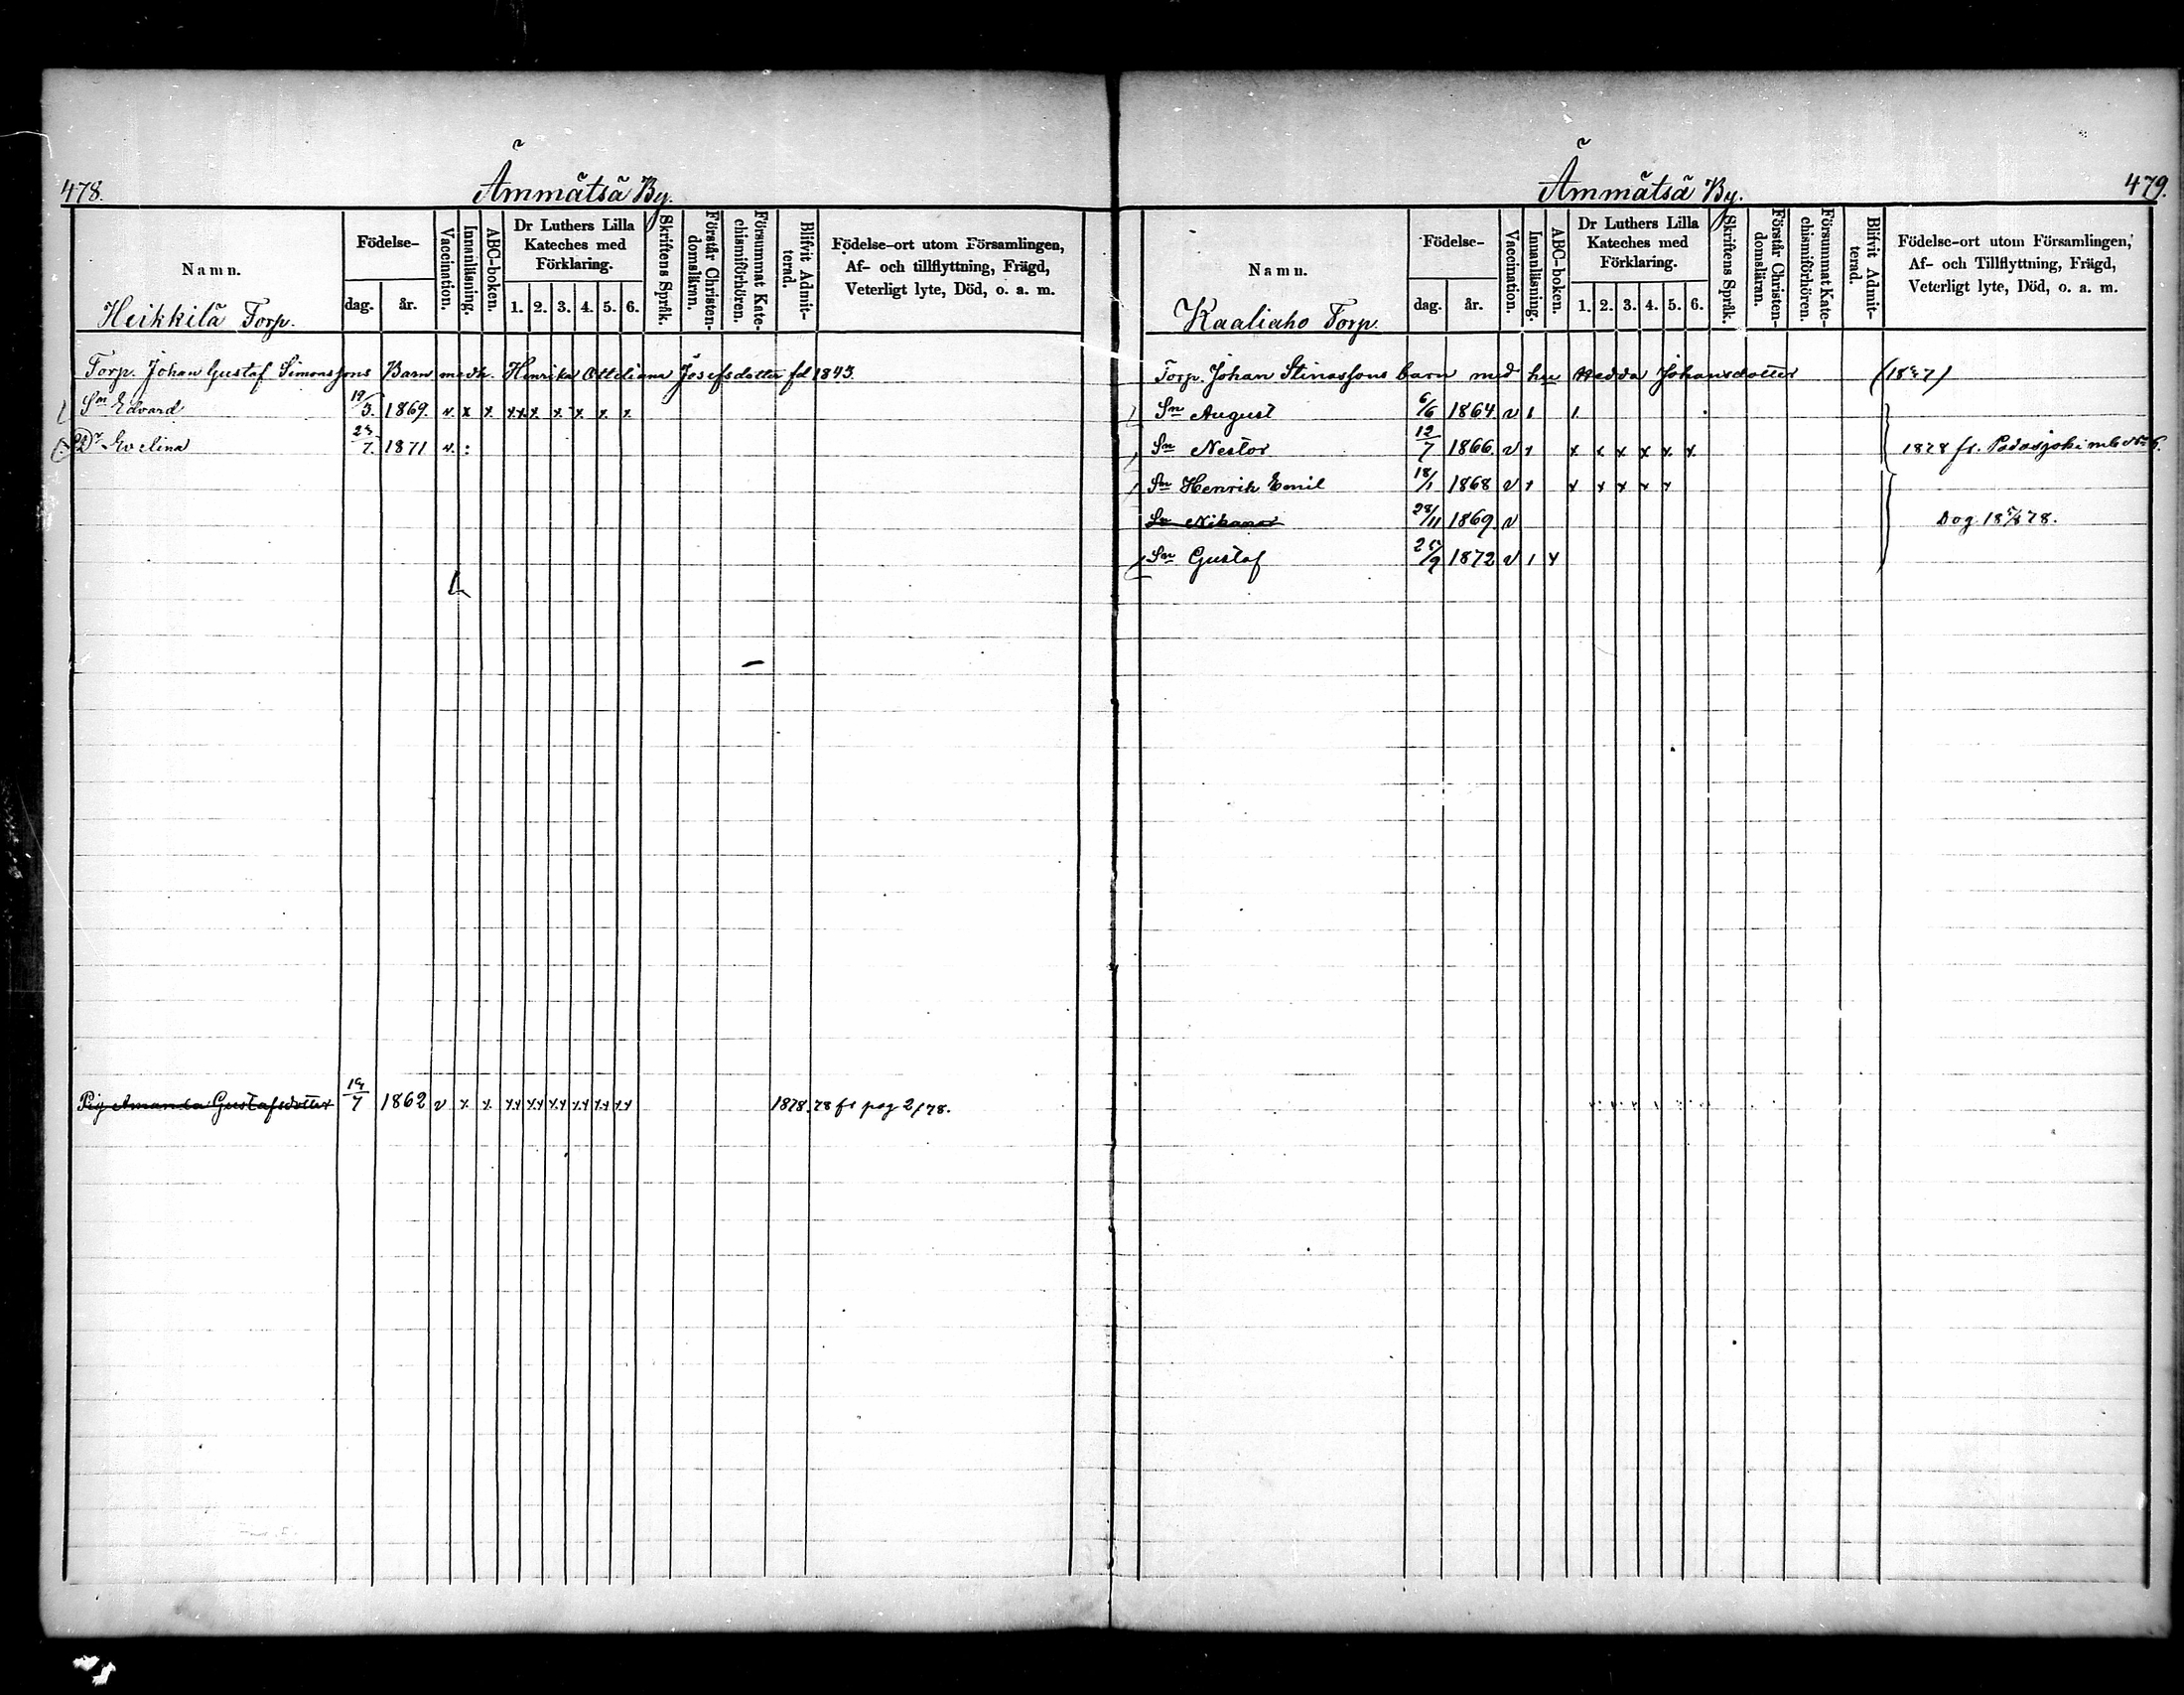 478.
Ämmätsä By.
Namn.
Födelse-
dag.
år.
Vaccination.
Innanläsning.
ABC-boken.
Dr Luthers Lilla
Kateches med
Förklaring.
1. 2. 3. 4. 5. 6.
Skriftens Språk.
Förstår Christen-
domsläran.
Försummat Kate-
chismiförhören.
Blifvit Admit-
terad.
Födelse-ort utom Församlingen,
Af- och tillflyttning, Frägd,
Veterligt lyte, Död, o. a. m.
Heikkilä Torp.
Torp. Johan Gustaf Simonssons Barn med h. Henrika Ottiliana Josefsdotter fd 1843.
Sn Edvard 19/3. 1869. v. x x xx x x x x x
Dr Evelina 23/7. 1871 v. :
Pig Amanda Gustafsdotter 19/7 1862 v x x xx xx xx xx xx xx 1878. 78 fr pag 2/78.
479.
Ämmätsä By.
Namn.
Födelse-
dag.
år.
Vaccination.
Innanläsning.
ABC-boken.
Dr Luthers Lilla
Kateches med
Förklaring.
1. 2. 3. 4. 5. 6.
Skriftens Språk.
Förstår Christen-
domsläran.
Försummat Kate-
chismiförhören.
Blifvit Admit-
terad.
Födelse-ort utom Församlingen,
Af- och Tillflyttning, Frägd,
Veterligt lyte, Död, o. a. m.
Kaaliaho Torp.
Torp. Johan Stinassons barn med hu Hedda Johansdotter
Sn August 6/6 1864 v 1 1
Sn Nestor 12/7 1866. v x x x x x x x 1878 fr. Padasjoki
Sn Henrik Emil 18/1 1868 v x x x x x x
Sn Nikanor 28/11 1869 v
Sn Gustaf 25/9 1872 v 1 x